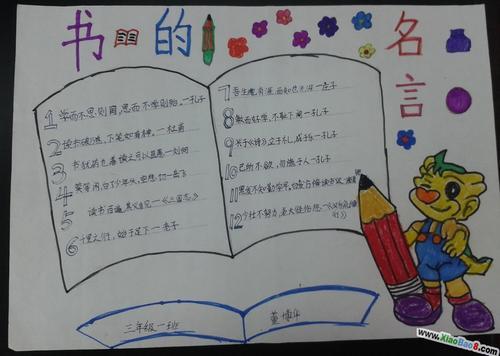 书的名言
1 学而不思则罔，思而不学则殆。—孔子
2 读书破万卷，下笔如有神。—杜甫
3 书犹药也，善读之可以医愚—刘向
4 莫等闲，白了少年头，空悲切—岳飞
5 读书百遍，其义自见—《三国志》
6 千里之行，始于足下—老子
7 吾生也有涯，而知也无涯—庄子
8 敏而好学，不耻下问—孔子
9 兴于《诗》，立于礼，成于乐—孔子
10 己所不欲，勿施于人—孔子
11 黑发不知勤学早，白首方悔读书迟
12 少壮不努力，老大徒伤悲
三年级一班
董博华
www.XiaoBao8.com